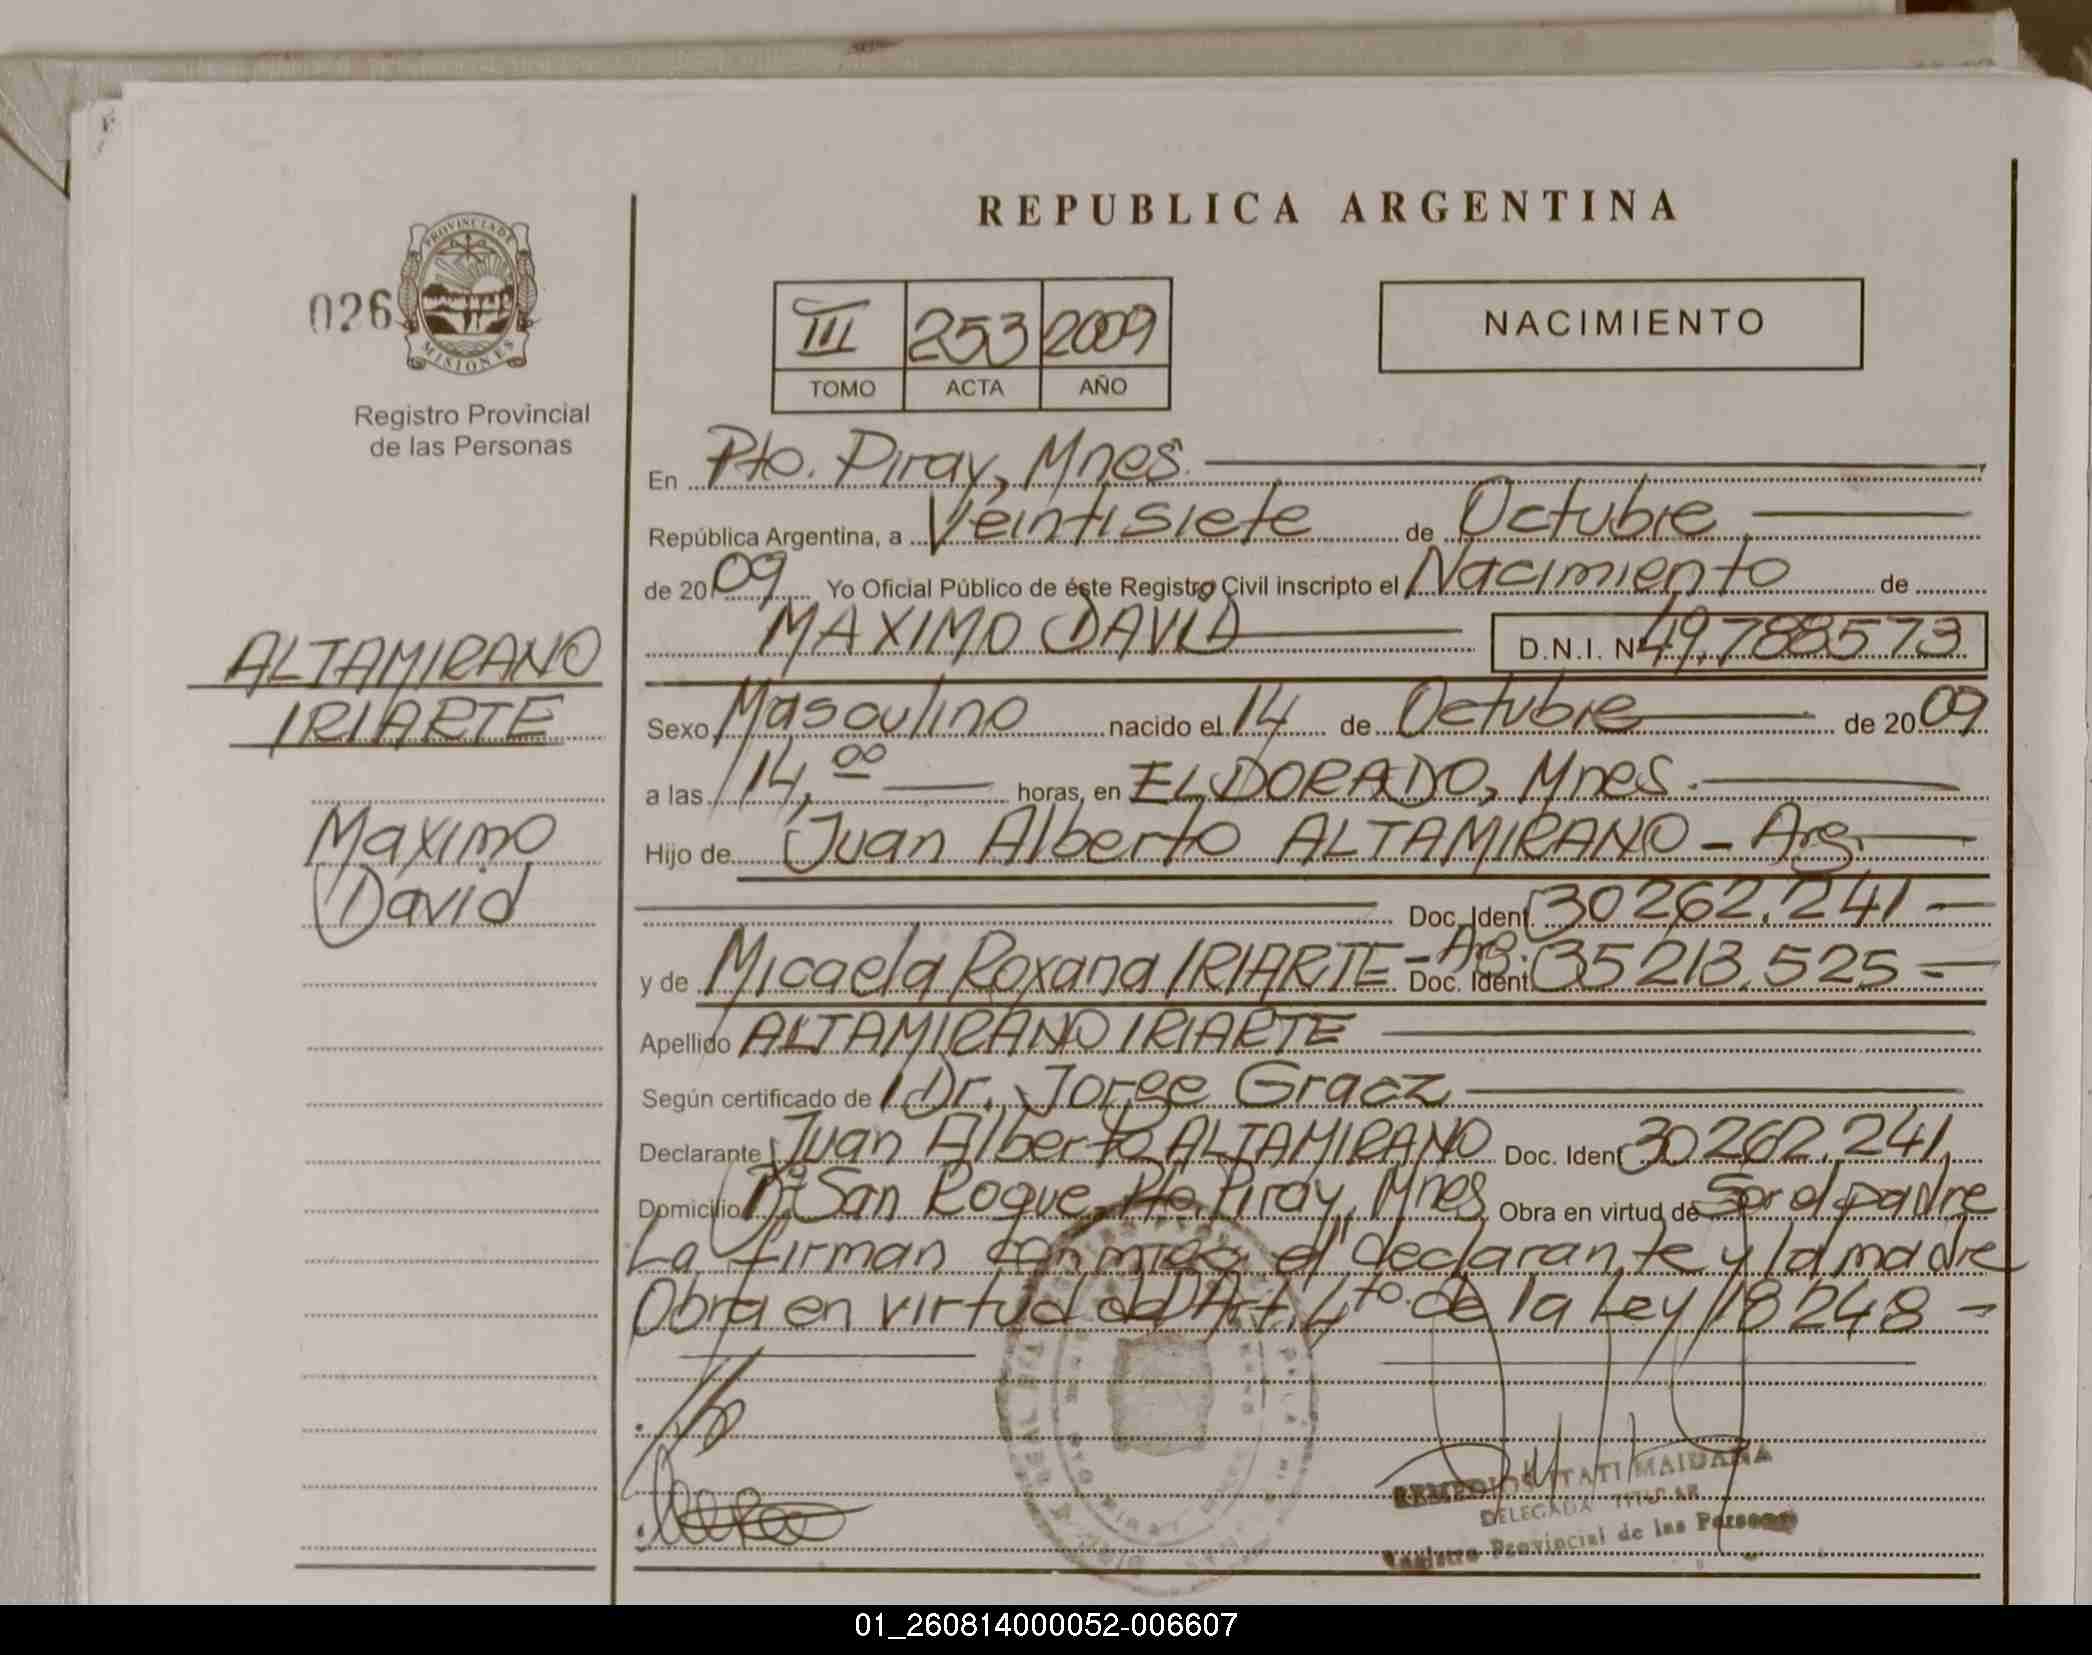 REPUBLICA ARGENTINA
026
PROVINCIA DE
MISIONES
Registro Provincial
de las Personas
III 253 2009
TOMO ACTA AÑO
NACIMIENTO
En Pto. Piray, Mnes.
República Argentina, a Veintisiete de Octubre
de 2009 Yo Oficial Público de éste Registro Civil inscripto el Nacimiento de
MAXIMO DAVID D.N.I. Nº 49.788573
ALTAMIRANO
IRIARTE
Maximo
David
Sexo Masculino nacido el 14 de Octubre de 2009
a las 14,00 horas, en ELDORADO, Mnes.
Hijo de Juan Alberto ALTAMIRANO - Arg.
Doc. Ident. 30262.241 -
y de Micaela Roxana IRIARTE - Arg. Doc. Ident. 35213.525 -
Apellido ALTAMIRANO IRIARTE
Según certificado de Dr. Jorge Gracz
Declarante Juan Alberto ALTAMIRANO Doc. Ident. 30262.241
Domicilio Bº San Roque Pto. Piray, Mnes Obra en virtud de Ser el padre
La firman conmigo el declarante y la madre
Obra en virtud del Art. 4to. de la Ley 18248 -
REMEDIOS ITATI MAIDANA
DELEGADA TITULAR
Registro Provincial de las Personas
01_260814000052-006607